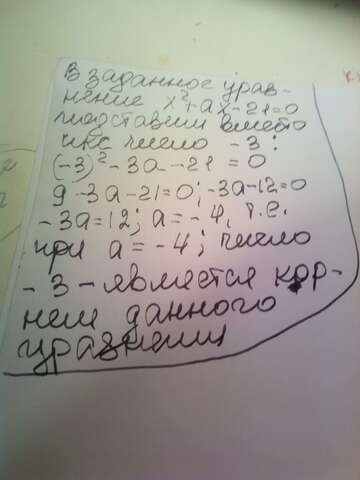 В заданное урав-
нение x²+ax-21=0
подставим вместо
икс число -3:
(-3)²-3a-21=0
9-3a-21=0; -3a-12=0
-3a=12; a=-4, т.е.
при a=-4; число
-3-является кор-
нем данного
уравнения